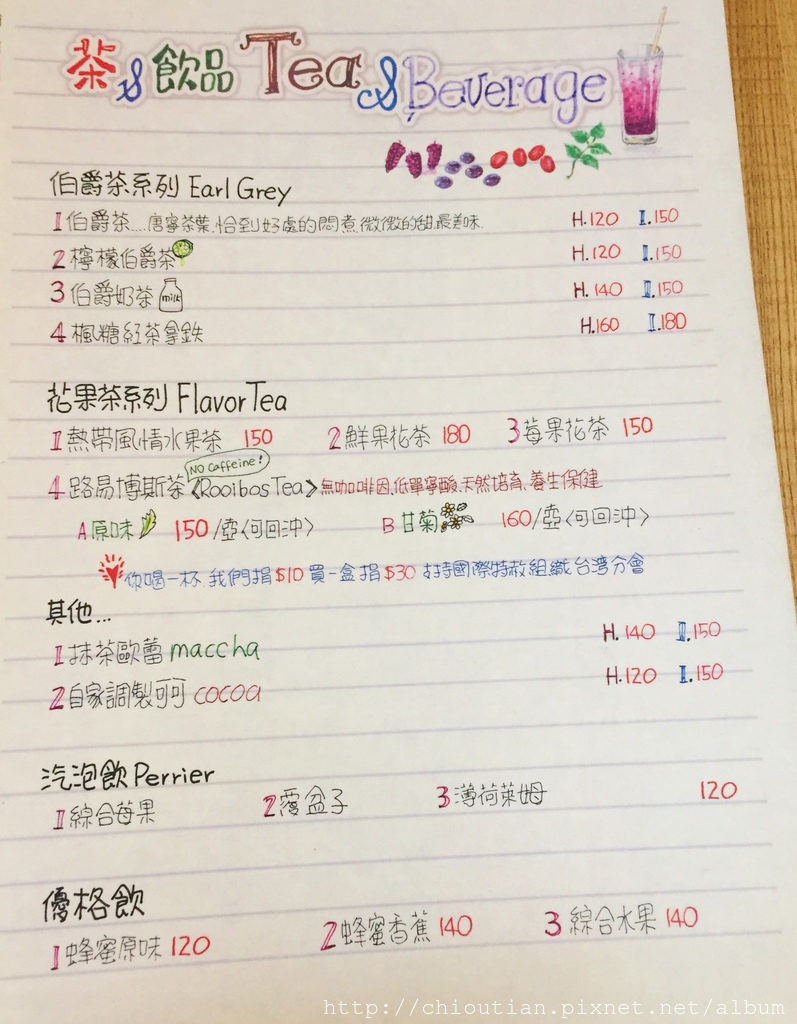 茶&飲品 Tea & Beverage
伯爵茶系列 Earl Grey
1 伯爵茶....唐寧茶葉.恰到好處的悶煮.微微的甜.最美味. H.120 I.150
2 檸檬伯爵茶 H.120 I.150
3 伯爵奶茶 milk H.140 I.150
4 楓糖紅茶拿鉄 H.160 I.180
花果茶系列 Flavor Tea
1 熱帶風情水果茶 150 2 鮮果花茶 180 3 莓果花茶 150
NO caffeine!
4 路易博斯茶《Rooibos Tea》無咖啡因.低單寧酸.天然培育.養生保健
A 原味 150/壺〈可回沖〉 B 甘菊 160/壺〈可回沖〉
你喝一杯 我們捐$10 買一盒捐$30 支持國際特赦組織台湾分會
其他...
1 抹茶歐蕾 maccha H.140 I.150
2 自家調製可可 cocoa H.120 I.150
汽泡飲 Perrier
1 綜合莓果 2 覆盆子 3 薄荷萊姆 120
優格飲
1 蜂蜜原味 120 2 蜂蜜香蕉 140 3 綜合水果 140
http://chioutian.pixnet.net/album